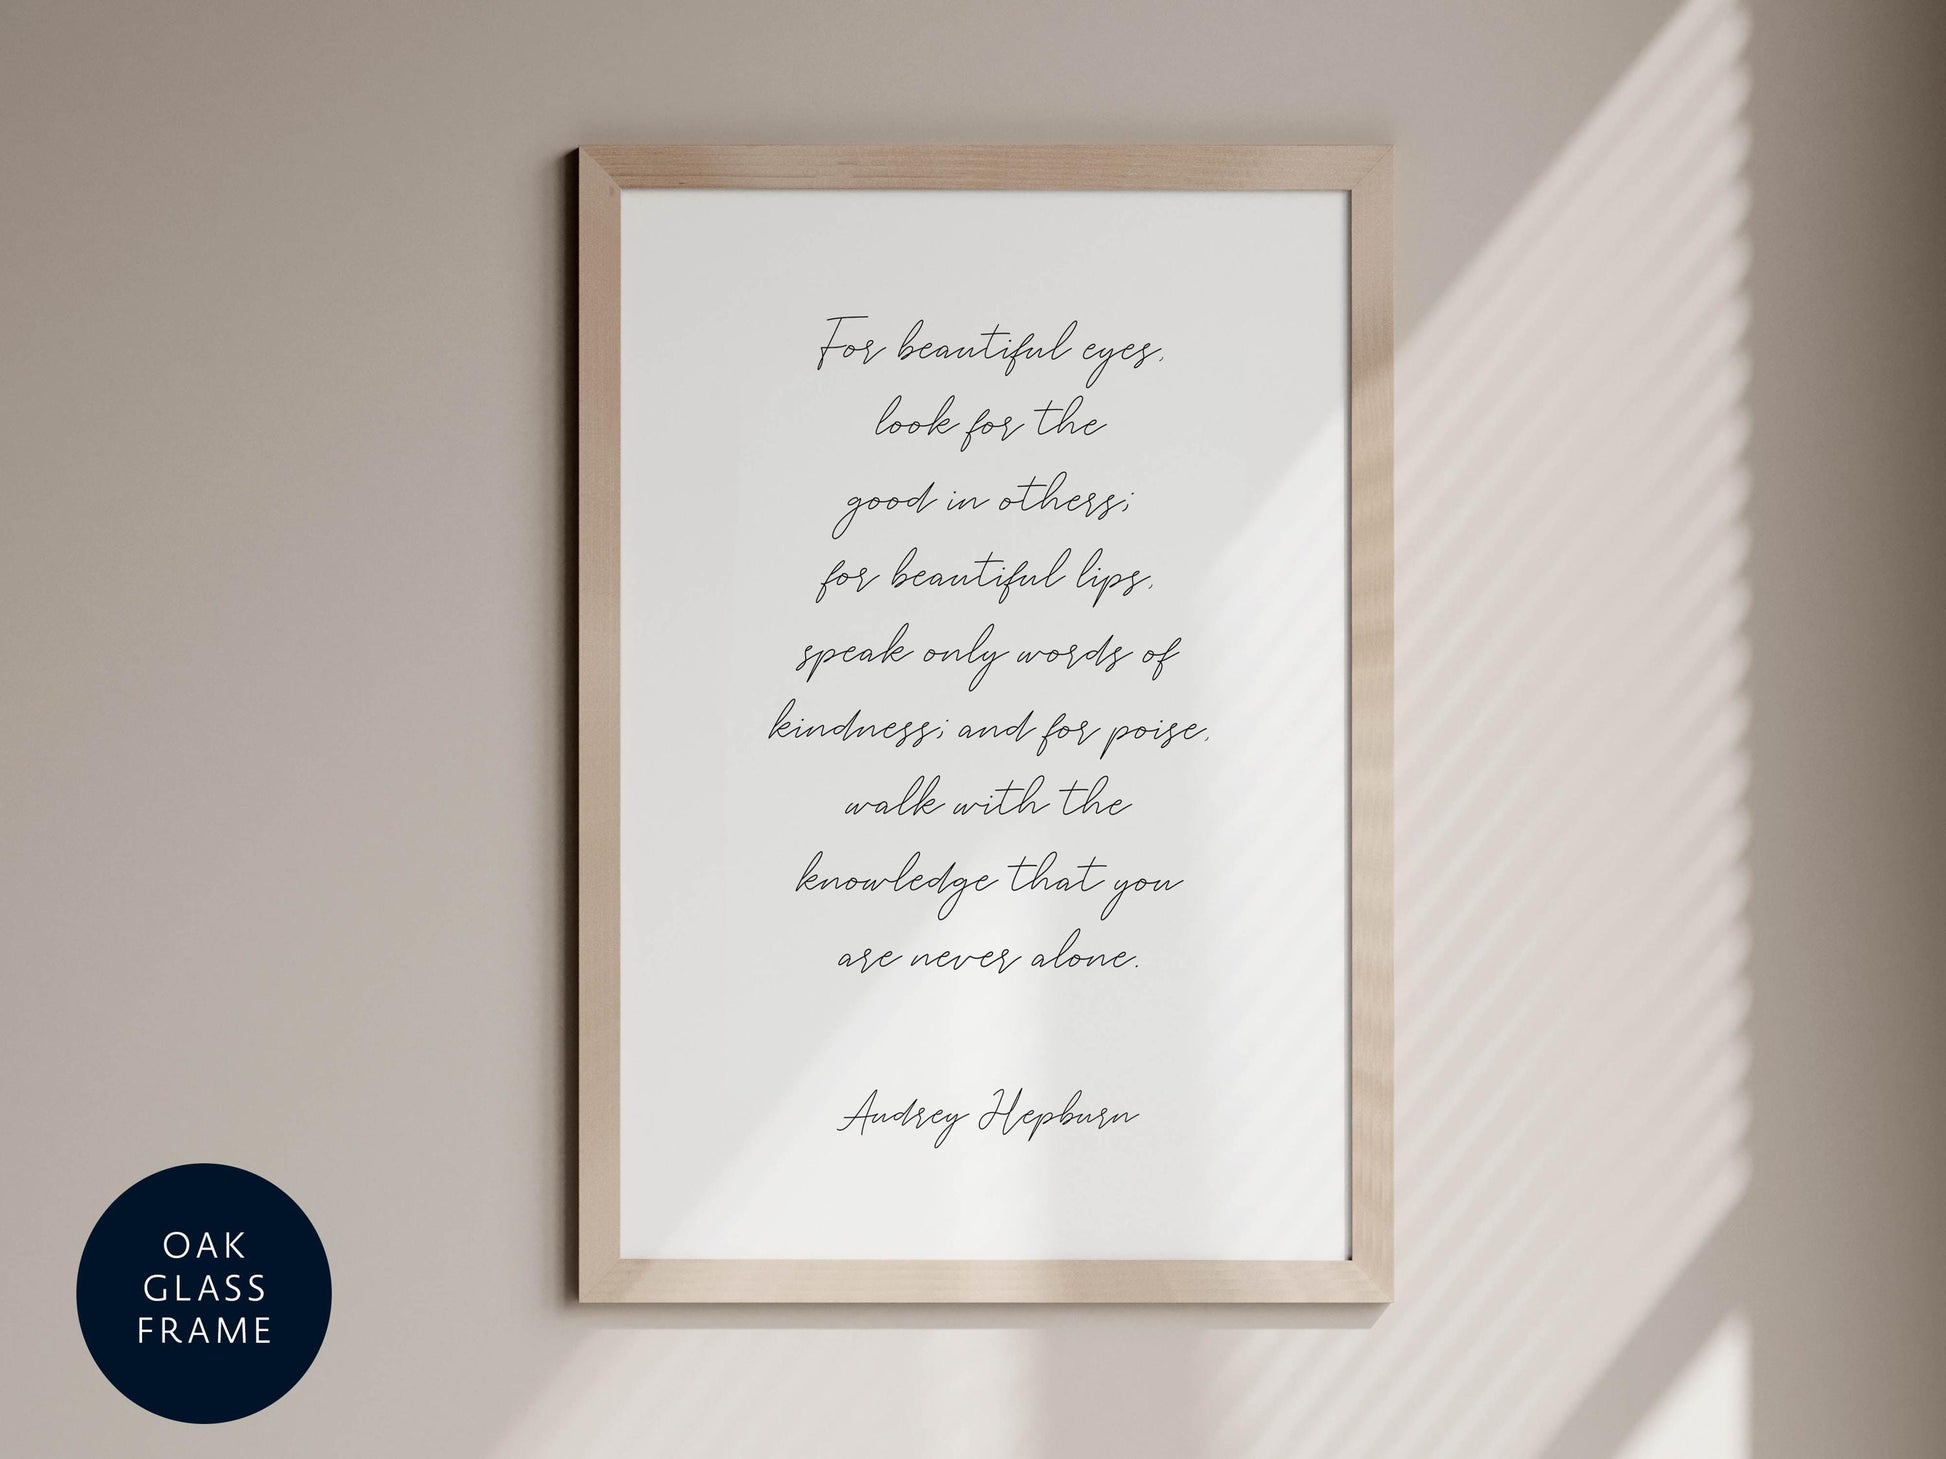 For beautiful eyes,
look for the
good in others;
for beautiful lips,
speak only words of
kindness; and for poise,
walk with the
knowledge that you
are never alone.
Audrey Hepburn
OAK
GLASS
FRAME